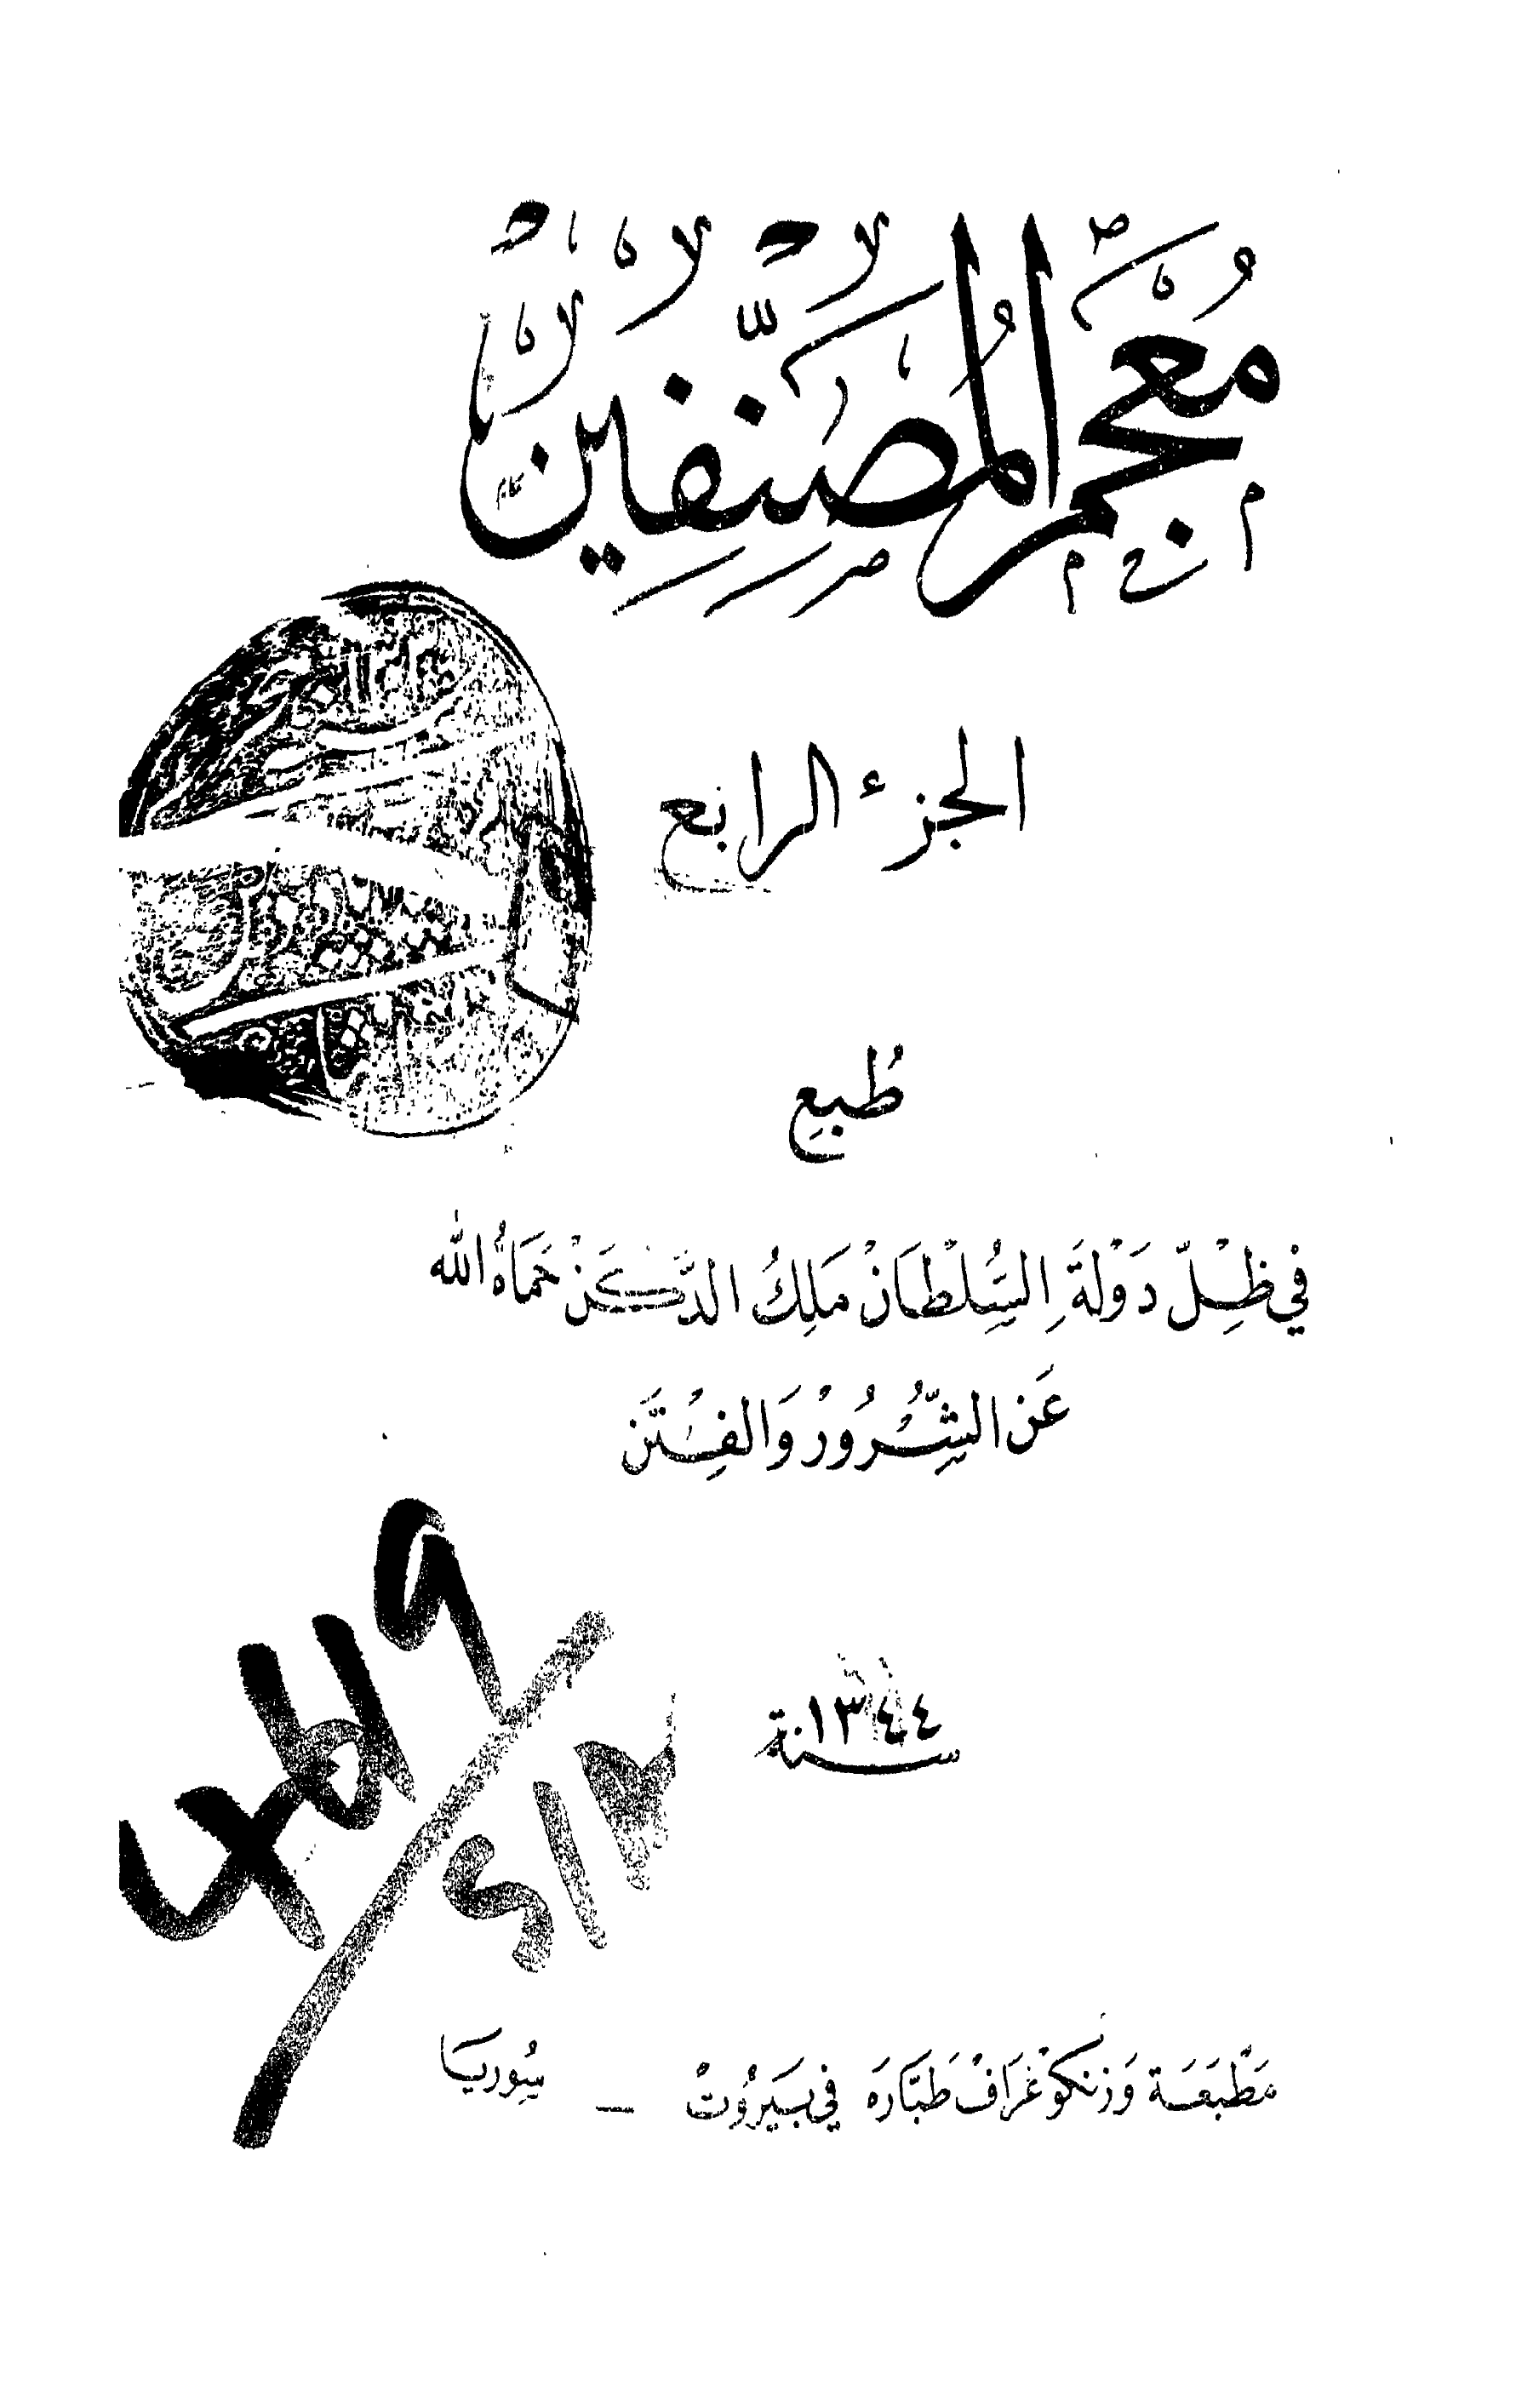 مُعْجَمُ المُصَنِّفِينَ
الجزء الرابع
طُبعِ
في ظِلّ دَوْلَةِ السُّلْطَانْ مَلِكُ الدَّكَنْ حَمَاهُ الله
عَن الشُّرُورْ وَالفِتَن
سنة ١٣٤٤
مَطْبَعَة وَزنكوغرَافْ طَبَّارَه في بَيرُوتْ – سُوريَا